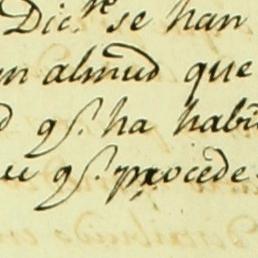 Dic.re se han
un almud que
qs. ha habi
qs. procede